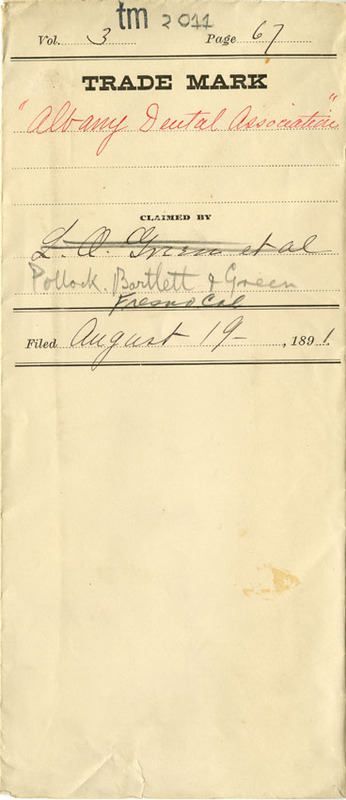 tm 2011
Vol. 3 Page 67
TRADE MARK
"Albany Dental Association"
CLAIMED BY
L. A. Green et al
Pollock. Bartlett & Green
Fresno Cal
Filed August 19- , 1891.